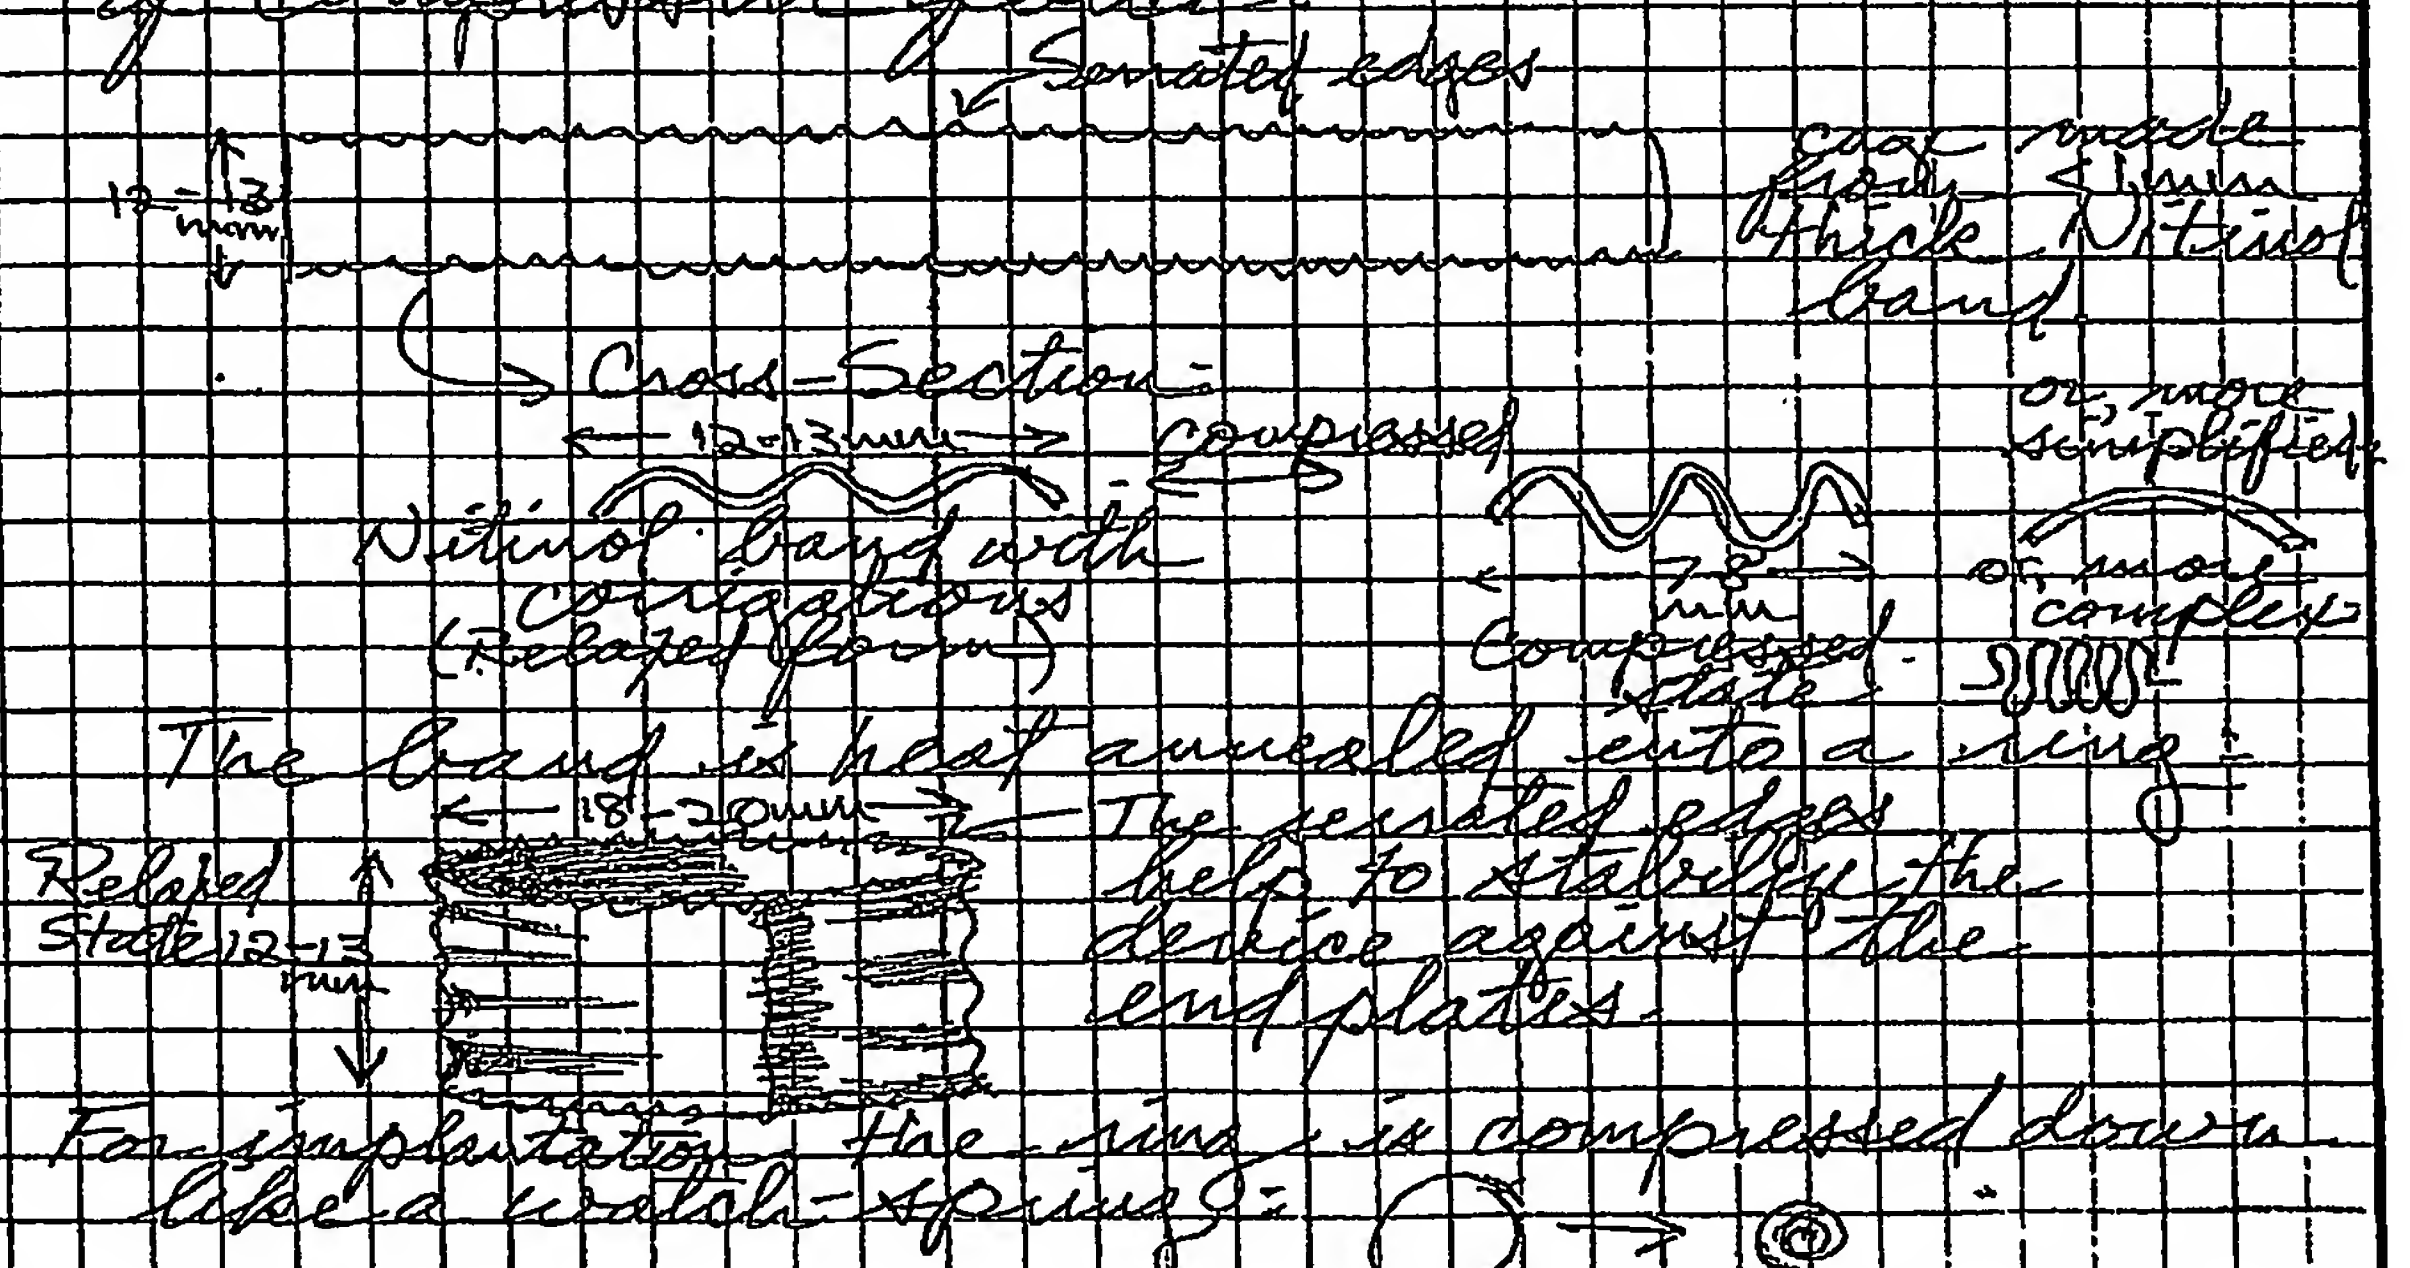 Serrated edges
12-13
mm
cage made
from <1mm
thick Nitinol
band
Cross-Section:
12-13mm
compressed
or, more
simplified:
Nitinol band with
corrigations
(Relaxed form)
7-8
mm
Compressed
state
or, more
complex
The band is heat annealed into a ring:
18-20mm
Relaxed
State 12-13
mm
The serrated edges
help to stabilize the
device against the
endplates.
For implantation the ring is compressed down
like a watch-spring: